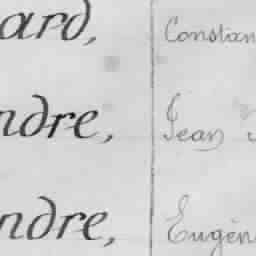 ard, Constan
ndre, Jean
ndre, Eugèn